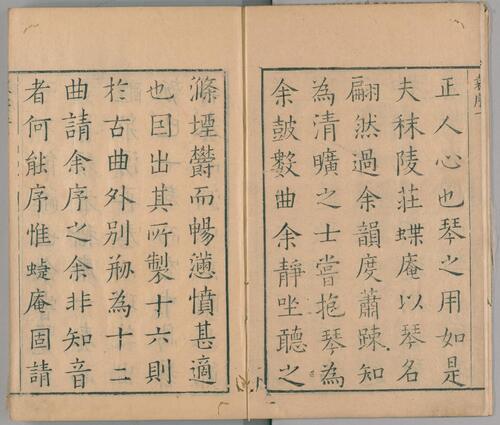 正人心也琴之用如是
夫秣陵莊蝶庵以琴名
翩然過余韻度蕭踈知
為清曠之士嘗抱琴為
余皷數曲余靜坐聽之
滌堙鬱而暢懣憤甚適
也囙出其所製十六則
於古曲外别剏為十二
曲請余序之余非知音
者何能序惟蜨庵固請